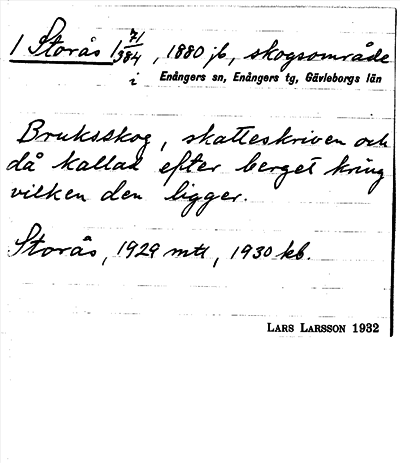 1 Storås 1 71/384, 1880 jb, skogsområde
i Enångers sn, Enångers tg, Gävleborgs län
Bruksskog, skatteskriven och
då kallad efter berget kring
vilken den ligger.
Storås, 1929 mtl, 1930 kb.
LARS LARSSON 1932